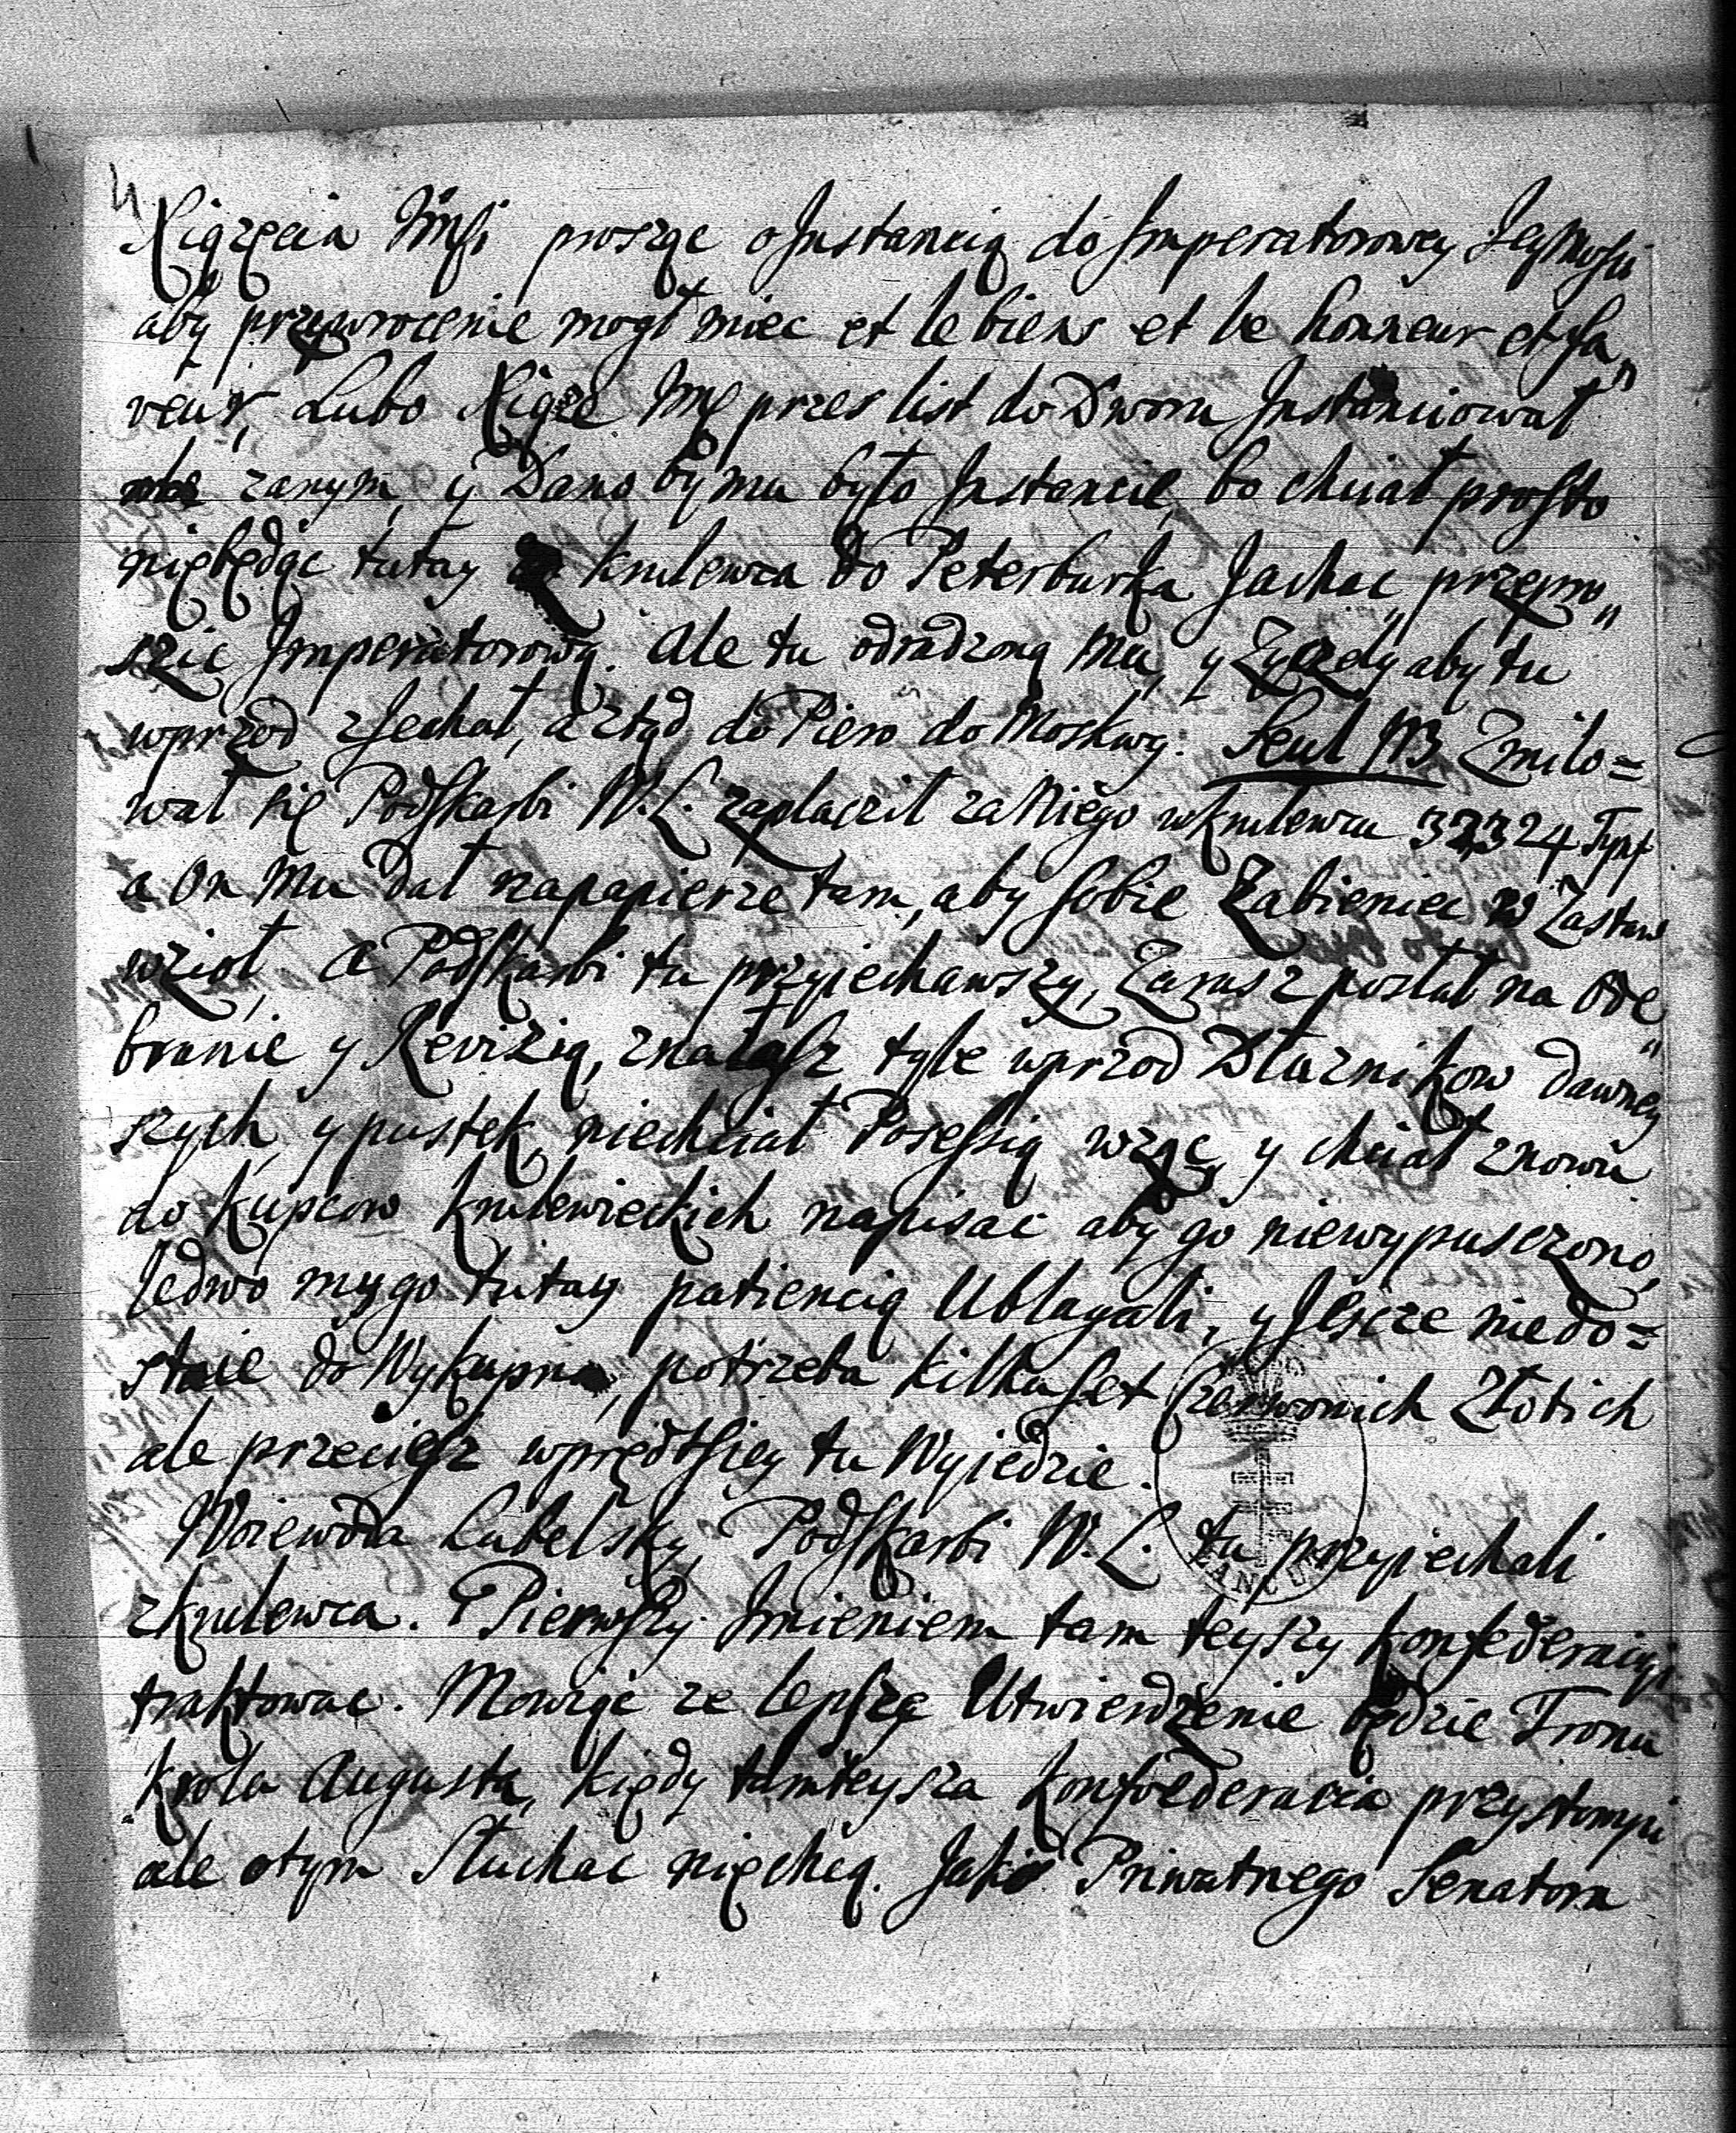 4
Xiązęcia Jmsci prosząc o Jnstancią do Jmperatorowey Jeymosci
aby przywrocenie mogł miec et le biens et le honneur et fa„
veur, Lubo Xiąze Jmsc przes list do Dworu Jnstanciował
zanym, y Dano by mu było Jnstancie, bo chciał prosto
niębędąc tutay z krulewca do Peterburka Jachac, przepro„
szic Jmperatorową. Ale tu odradzoną Mu, y Zyczely aby tu
wprzod zJechał, a ztąd do Piero do Moskwy. Seul NB Zmilo=
wał się Podskarbi W. L. zaplaczil za Niego w krulewcu 32324 Tynf
a On Mu dał napapierze tam, aby sobie Zabieniec w Zastaw
wzioł, A Podskarbi tu przyjechawszy, Zarasz posłał na Ode„
branie y Rewizią, znalasz tyle wprzod Dłuznikow dawney
szych, y pustek, niechciał Posessią wząc, y chciał znowu
do kupcow krulewieckich napisac aby go niewypusczono,
Jedwo my go tutay patiencią Ublagali, y Jescze niedo=
staie do Wykupna, potrzeba kilku set Czerwonich Złotich
ale przeciesz wprędtsiey tu Wyjedzie.
Woiewoda Lubelsky, Podskarbi W. L. tu przyjechali
z krulewca. Pierwszy Jmieniem tam teyszy konfederacyi
traktowac. Mowiąc ze lepsze Utwierdzenie będzie Tronu
krola Augusta, kiędy tamteysza konfoederacia przystompi
ale otym Słuchac niechcą. Jako Priwatnego Senatora
ŁAŃCUT